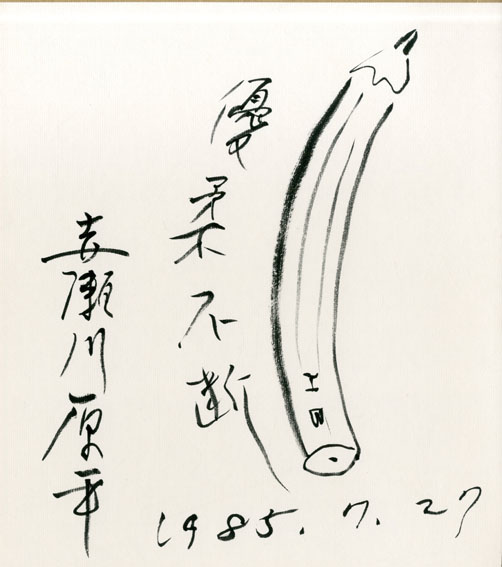 HB
優柔不断
赤瀬川原平
1985.7.27